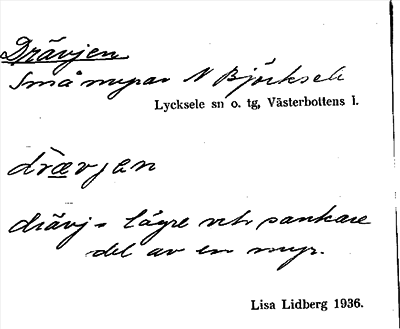 Drävjen
Små myrar N Björksele
Lycksele sn o. tg, Västerbottens l.
drævjen
dräv = lägre och sankare
del av en myr.
Lisa Lidberg 1936.